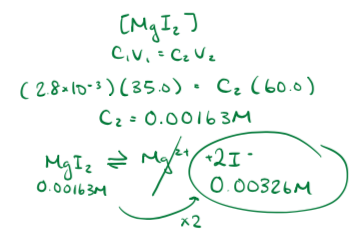 [MgI₂]
C₁V₁ = C₂V₂
(2.8×10⁻³)(35.0) = C₂ (60.0)
C₂ = 0.00163M
MgI₂ ⇌ Mg²⁺ + 2I⁻
0.00163M 0.00326M
×2